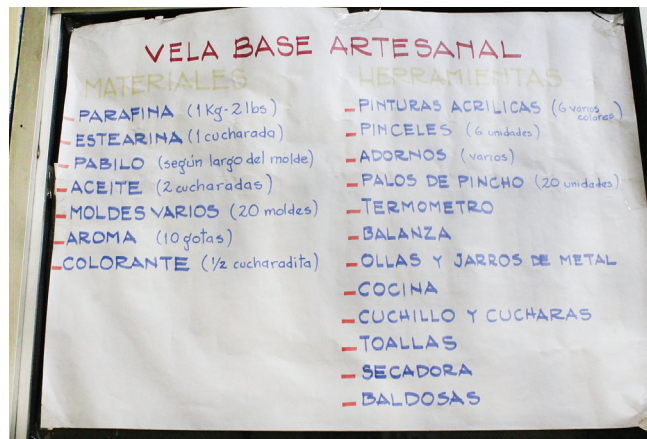 VELA BASE ARTESANAL
MATERIALES
- PARAFINA (1 Kg - 2 lbs)
- ESTEARINA (1 cucharada)
- PABILO (según largo del molde)
- ACEITE (2 cucharadas)
- MOLDES VARIOS (20 moldes)
- AROMA (10 gotas)
- COLORANTE (1/2 cucharadita)
HERRAMIENTAS
- PINTURAS ACRILICAS (6 varios colores)
- PINCELES (6 unidades)
- ADORNOS (varios)
- PALOS DE PINCHO (20 unidades)
- TERMOMETRO
- BALANZA
- OLLAS Y JARROS DE METAL
- COCINA
- CUCHILLO Y CUCHARAS
- TOALLAS
- SECADORA
- BALDOSAS